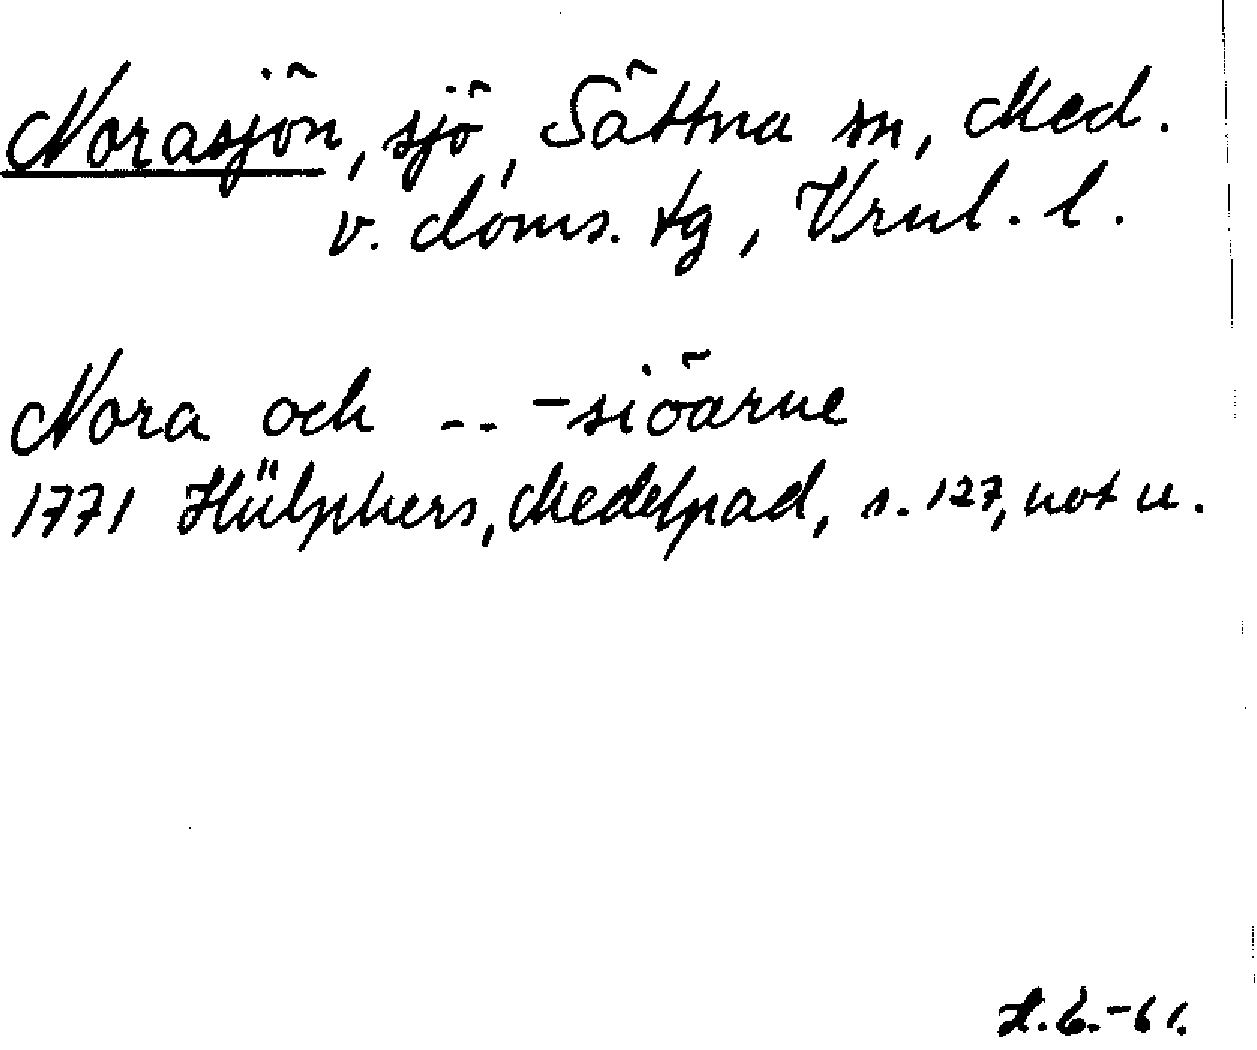 Norasjön, sjö, Sättna sn, Med.
v. döms. tg, Vrnl. l.
Nora och -- -siöarne
1771 Hülphers, Medelpad, s. 127, not u.
H.G.-61.